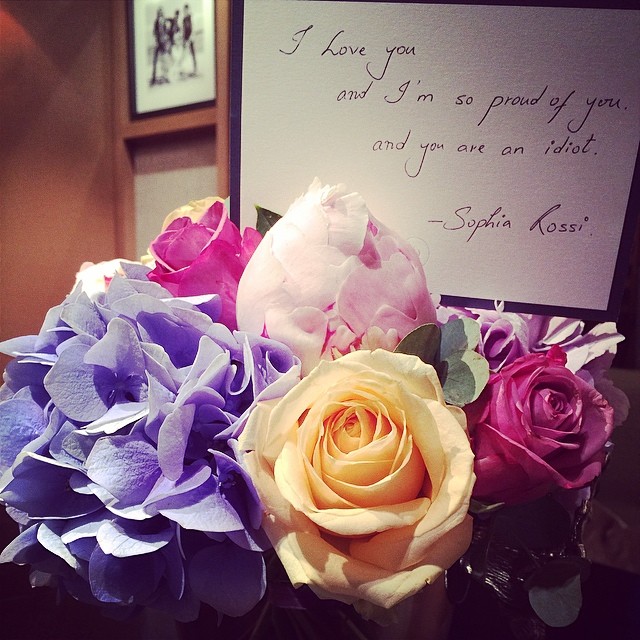 I Love you
and I'm so proud of you.
and you are an idiot.
-Sophia Rossi.